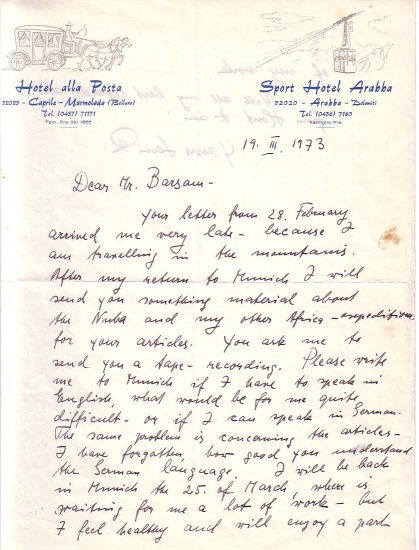 Hotel alla Posta
32023 - Caprile - Marmolada (Belluno)
Tel. (0437) 71171
Fam. Pra dal 1866
Sport Hotel Arabba
32020 - Arabba - Dolomiti
Tel. (0436) 7160
Famiglia Pra
19. III. 1973
Dear Mr. Barsam -
Your letter from 28. February
arrived me very late - because I
am travelling in the mountains.
After my return to Munich I will
send you something material about
the Nuba and my other Africa - expeditions
for your articles. You ask me to
send you a tape - recording. Please write
me to Munich if I have to speak in
English, what would be for me quite
difficult - or if I can speak in German.
The same problem is concerning the articles -
I have forgotten, how good you understand
the German language. I will be back
in Munich the 25. of March, where is
waiting for me a lot of work - but
I feel healthy and will enjoy a part